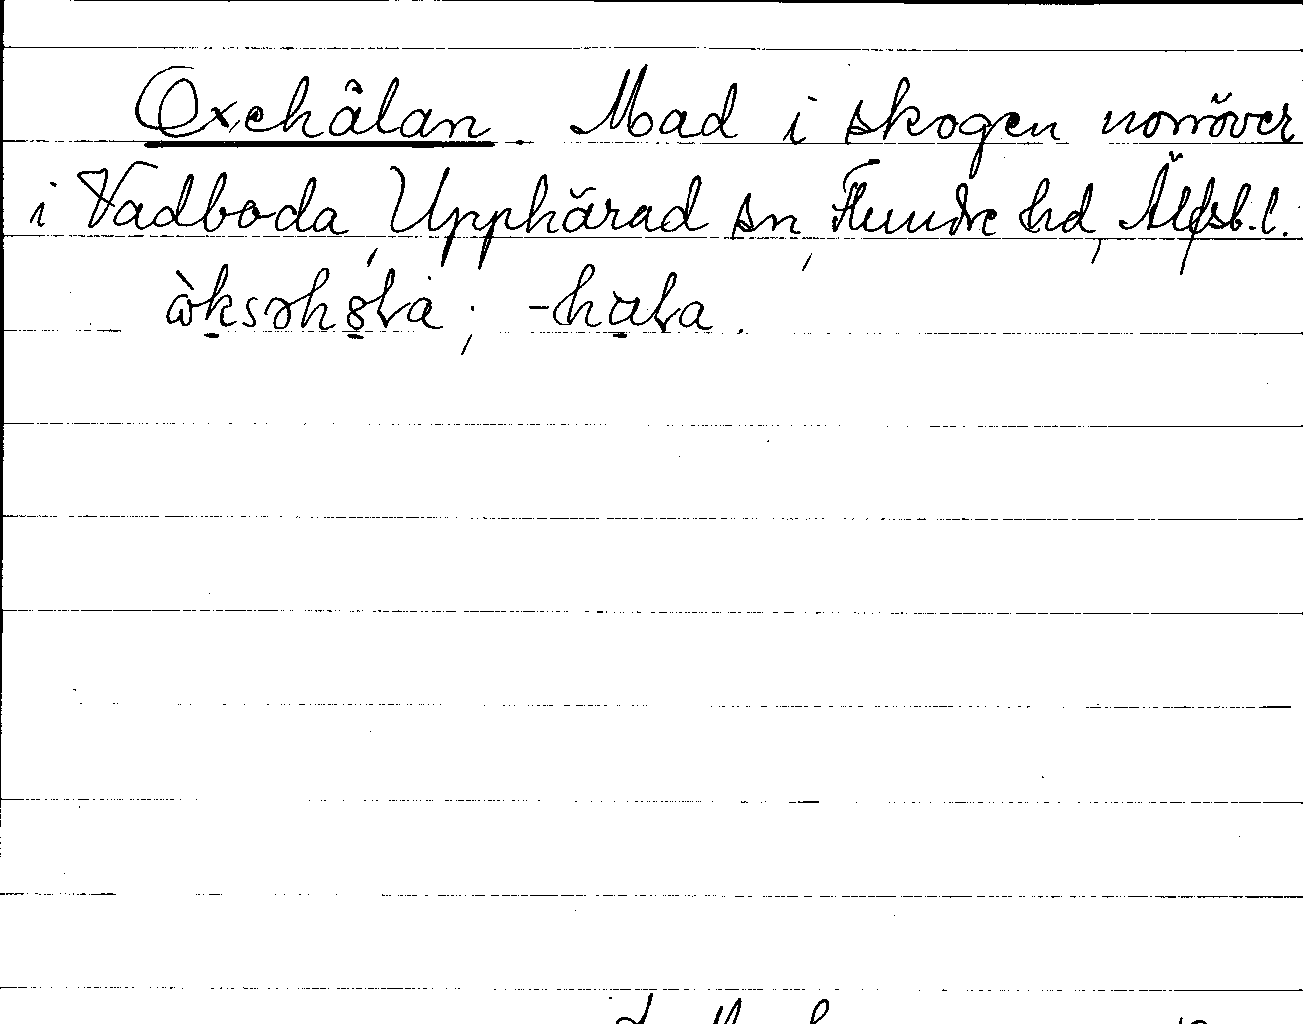 Oxehålan. Mad i skogen norröver
i Vadboda, Upphärad sn, Flundre hd, Älfsb. l.